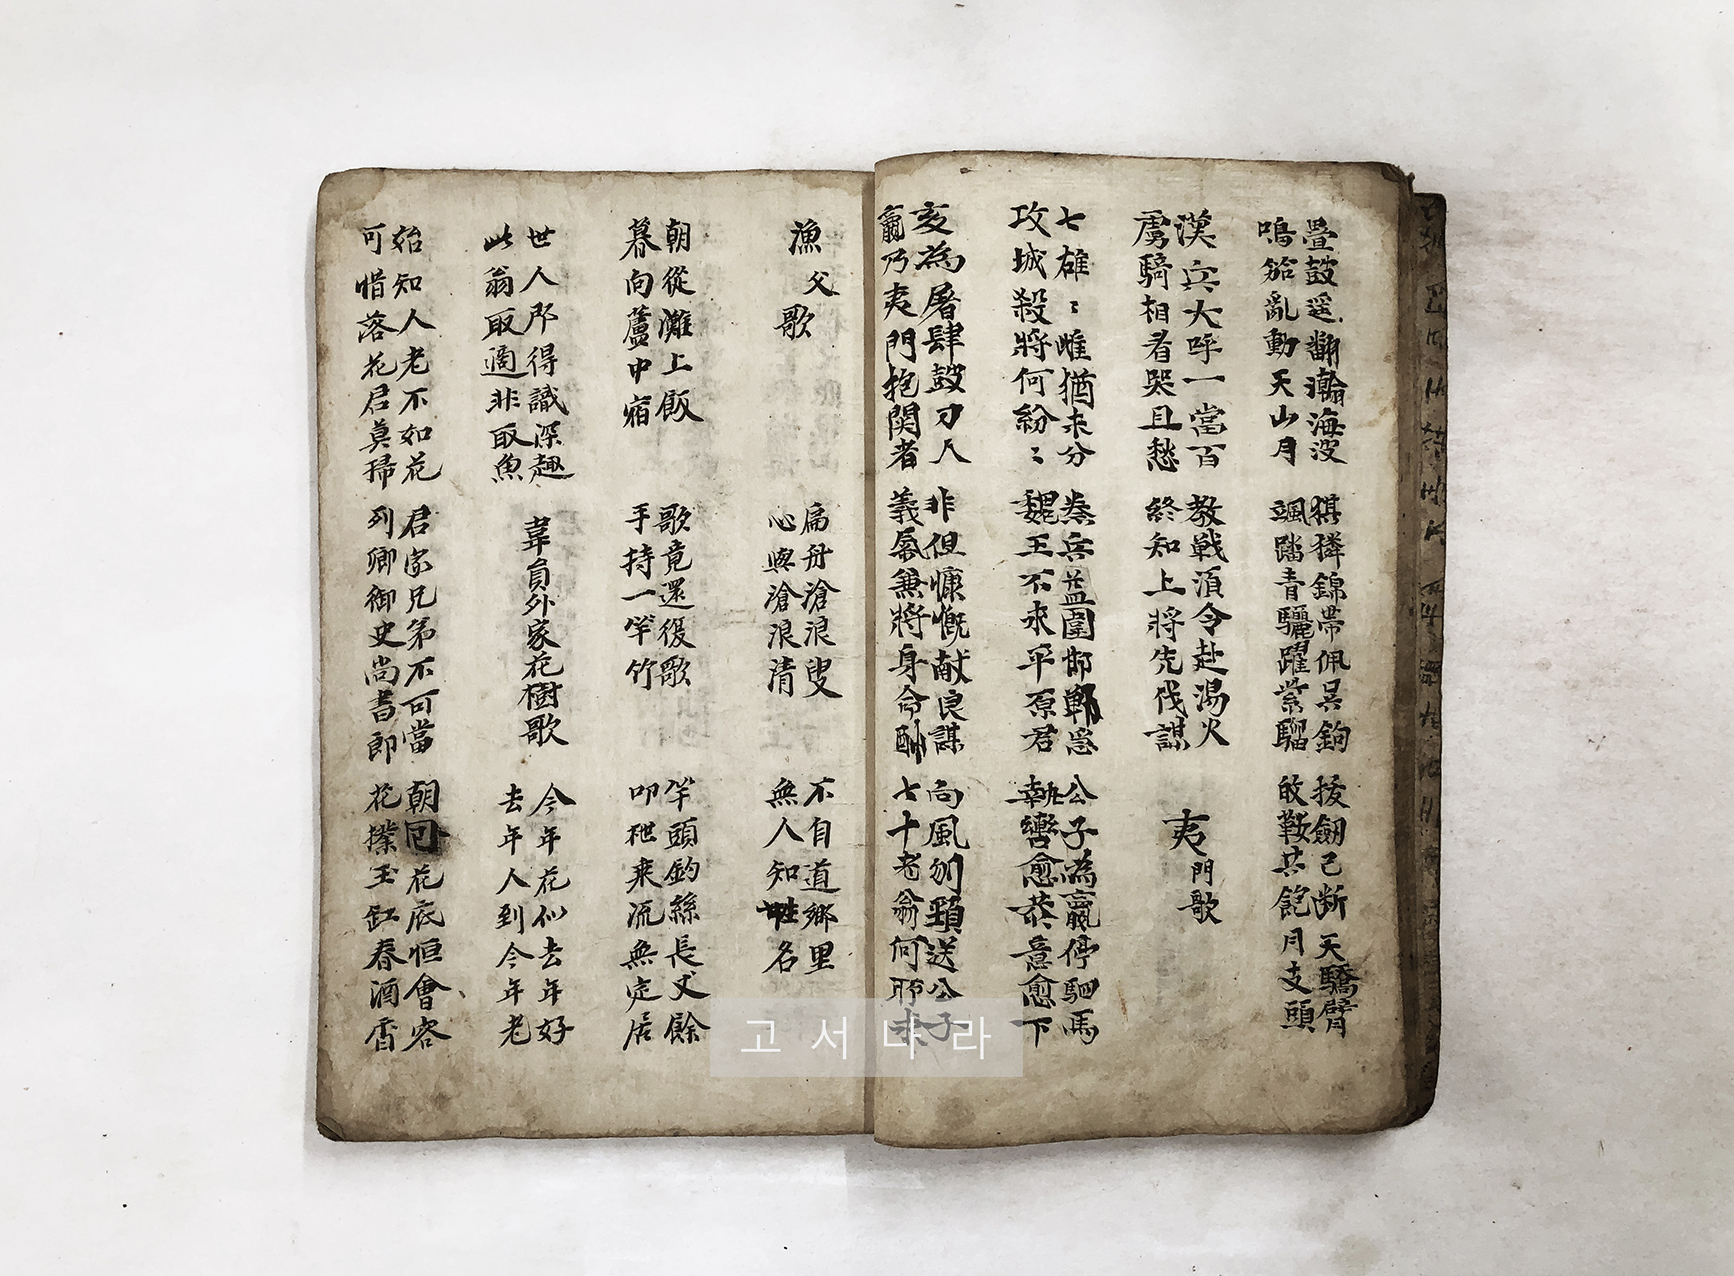 疊鼓遙翻瀚海波
鳴笳亂動天山月
猉獜錦帶佩吳鉤
颯踏青驪躍紫騮
拔劒已断天驕臂
皈鞍共飽月支頭
漢兵大呼一當百
虜騎相看哭且愁
教戰須令赴湯火
終知上將先伐謀
夷門歌
七雄〻雌猶未分
攻城殺將何紛〻
秦兵益圍邯鄲急
魏王不求平原君
公子為嬴停駟馬
執轡愈恭意愈下
亥為屠肆鼓刀人
嬴乃夷門抱関者
非但慷慨献良謀
義氣兼將身命酬
向風刎頸送公子
七十老翁何所求
漁父歌
扁舟滄浪叟
心與滄浪清
不自道鄉里
無人知姓名
朝從灘上飯
暮向蘆中宿
歌竟還復歌
手持一竿竹
竿頭釣絲長丈餘
叩枻乘流無定居
世人那得識深趣
此翁取適非取魚
韋員外家花樹歌
今年花似去年好
去年人到今年老
始知人老不如花
可惜落花君莫掃
君家兄弟不可當
列卿御史尚書郎
朝回花底恒會客
花撲玉缸春酒香
고서나라